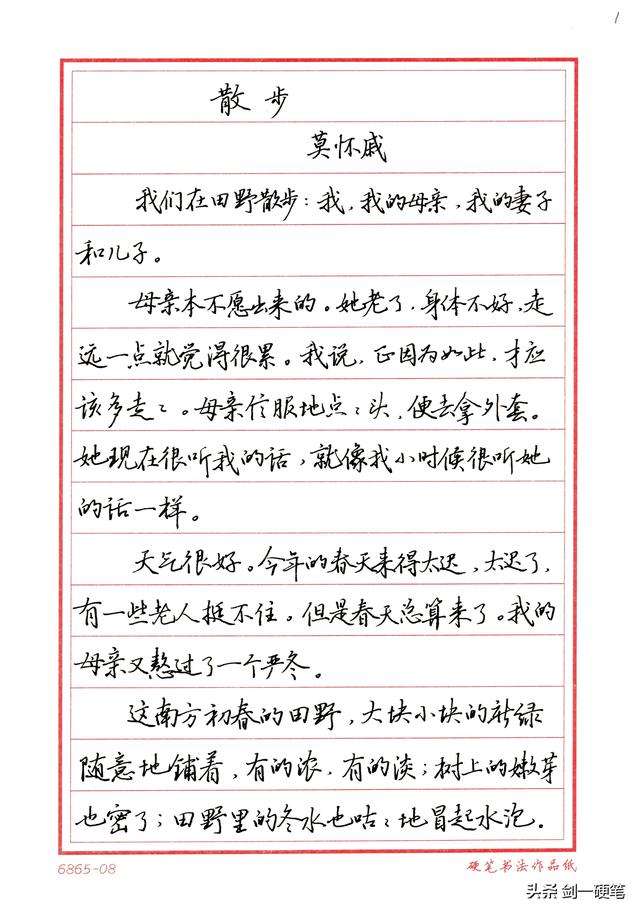 1
散步
莫怀戚
我们在田野散步：我，我的母亲，我的妻子
和儿子。
母亲本不愿出来的。她老了，身体不好，走
远一点就觉得很累。我说，正因为如此，才应
该多走〻。母亲信服地点〻头，便去拿外套。
她现在很听我的话，就像我小时候很听她
的话一样。
天气很好。今年的春天来得太迟，太迟了，
有一些老人挺不住。但是春天总算来了。我的
母亲又熬过了一个严冬。
这南方初春的田野，大块小块的新绿
随意地铺着，有的浓，有的淡；树上的嫩芽
也密了；田野里的冬水也咕〻地冒起水泡。
6865-08
硬笔书法作品纸
头条 剑一硬笔